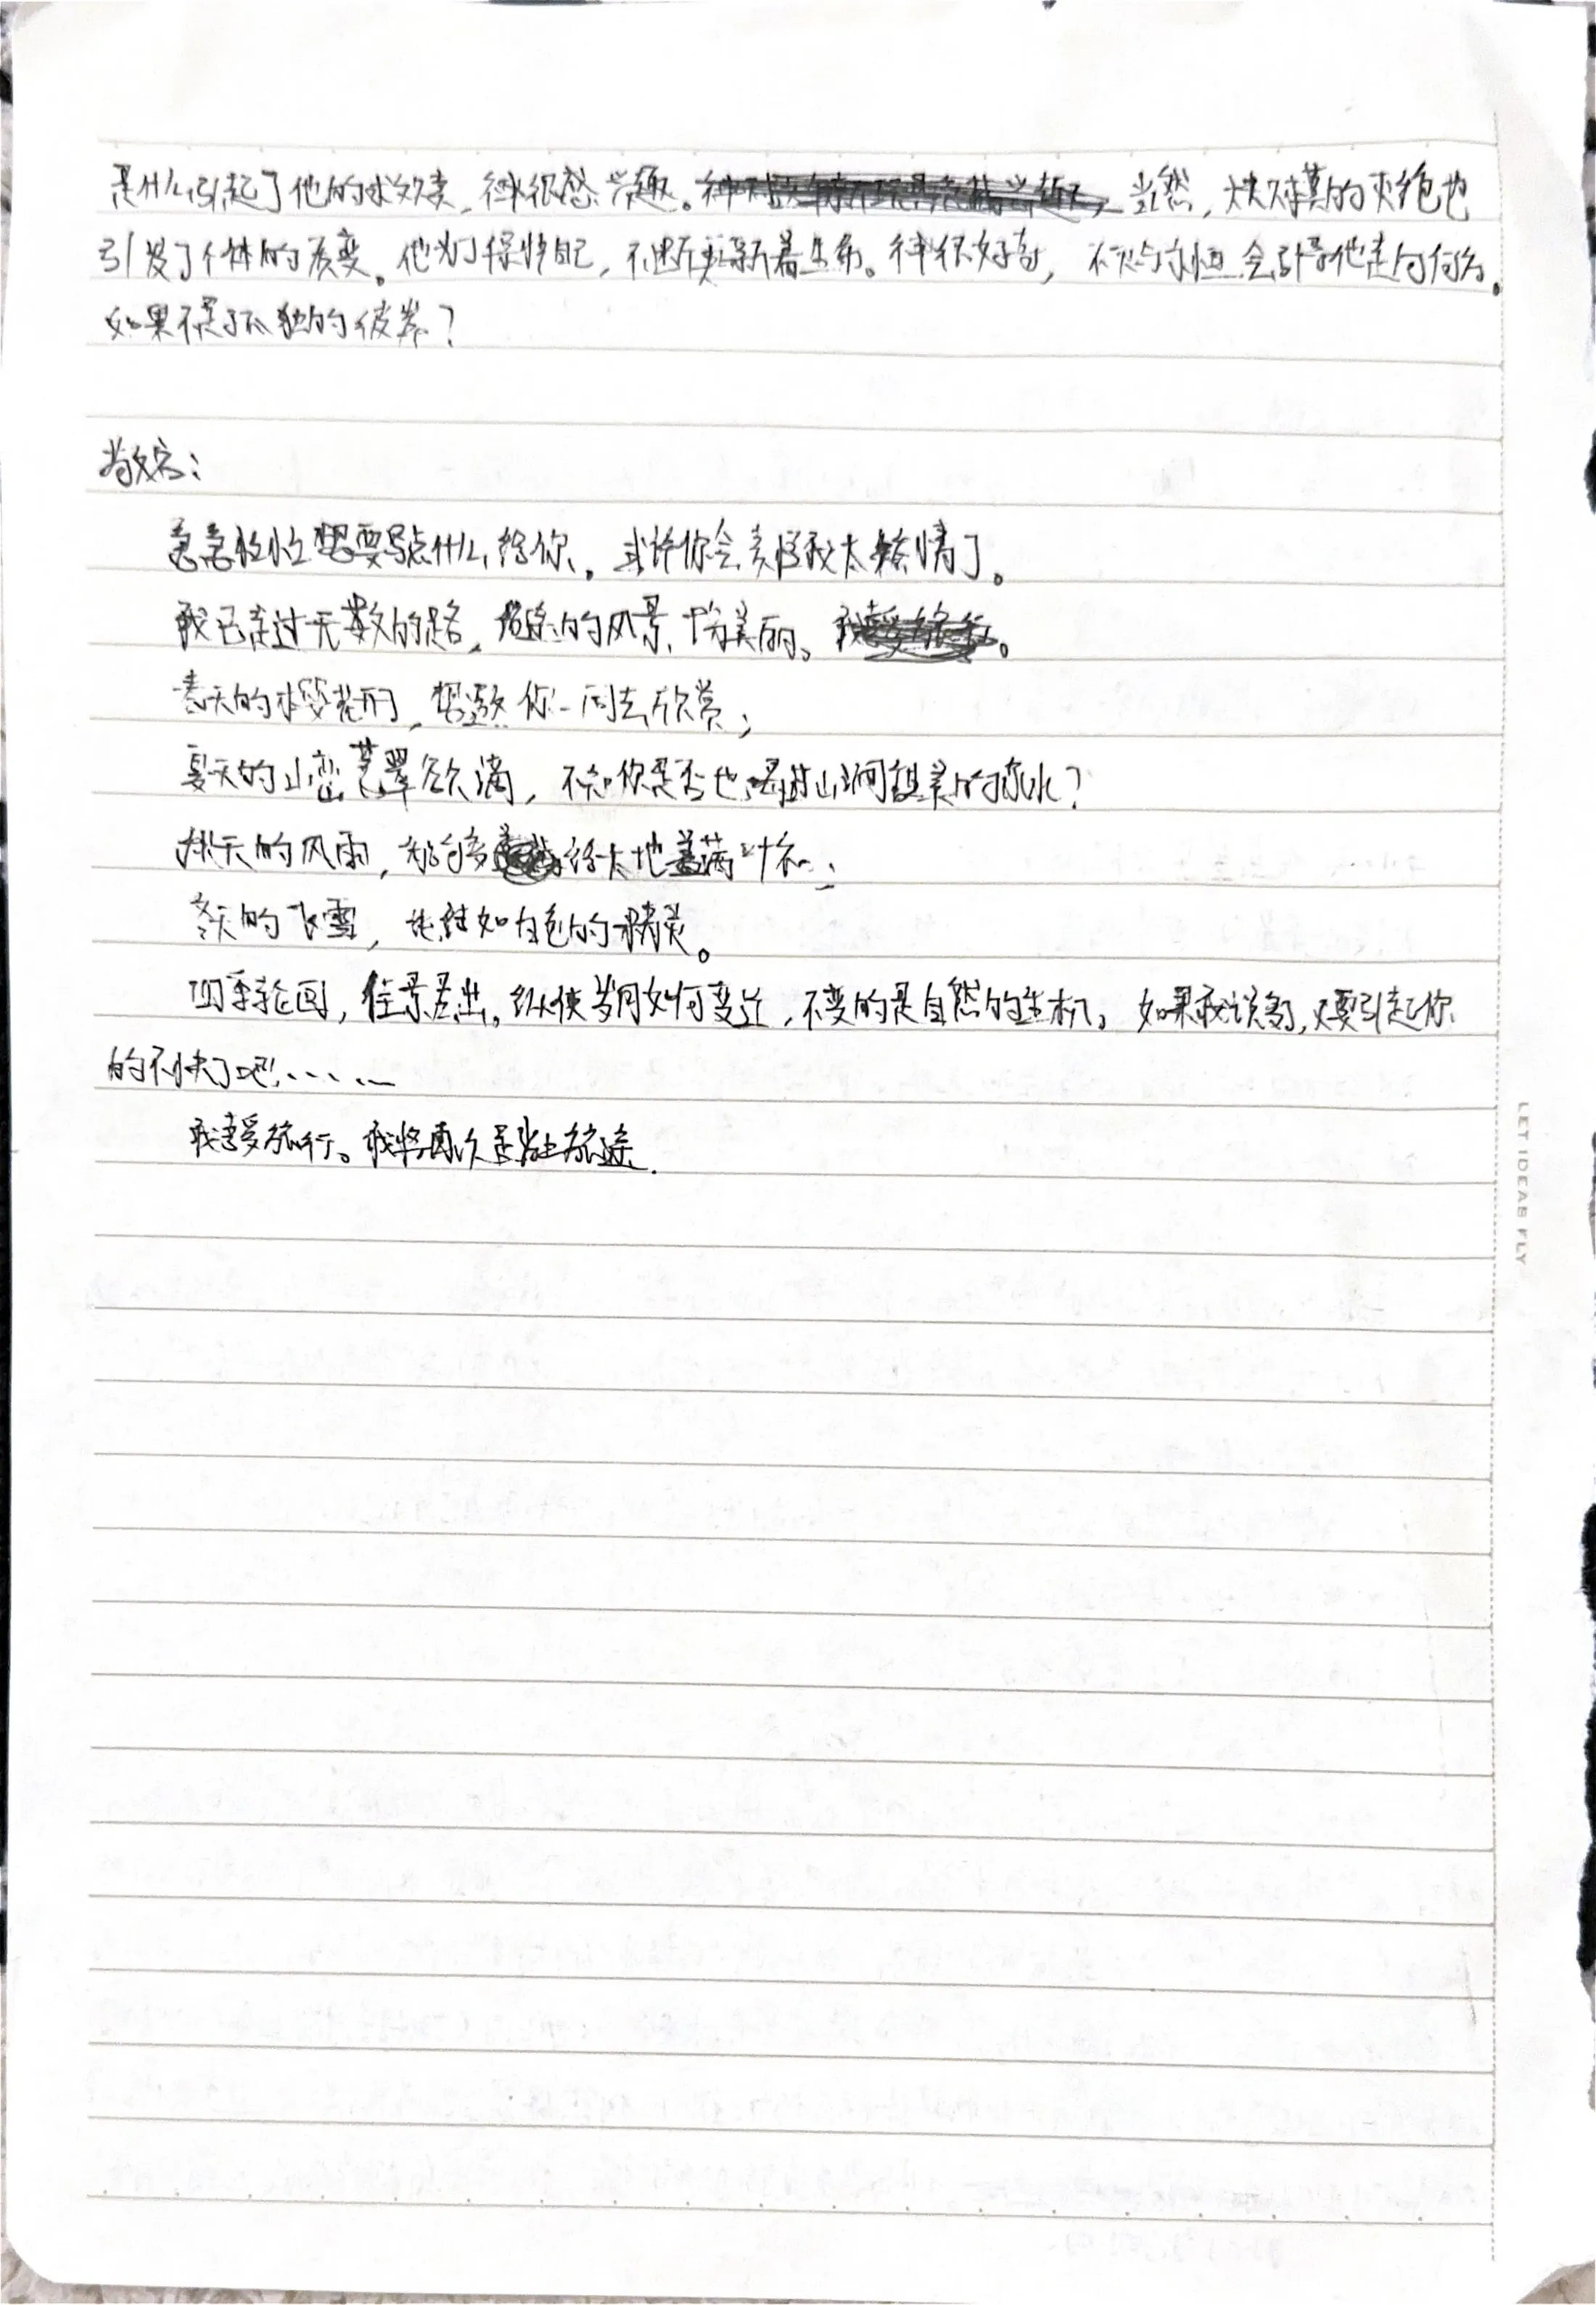 是什么引起了他的求欢声，神很感兴趣。当然，大规模的灭绝也
引发了个体的质变。他为了保护自己，不断更新着生命。神很好奇，不灭与永恒会引导他走向何方。
如果不是孤独的彼岸？
急急忙忙想要写点什么给你，或许你会责怪我太矫情了。
我已走过无数的路，沿途的风景十分美丽。
春天的樱花开了，想邀你一同去欣赏；
夏天的山峦苍翠欲滴，不知你是否也喝过山涧甜美的泉水？
秋天的风雨，能够给大地盖满叶衣；
冬天的飞雪，纯洁如白色的精灵。
四季轮回，佳景层出。纵使岁月如何变迁，不变的是自然的生机。如果我说多了，又要引起你
的不快了吧……
我喜爱旅行。我将再次踏上旅途.
LET IDEAS FLY